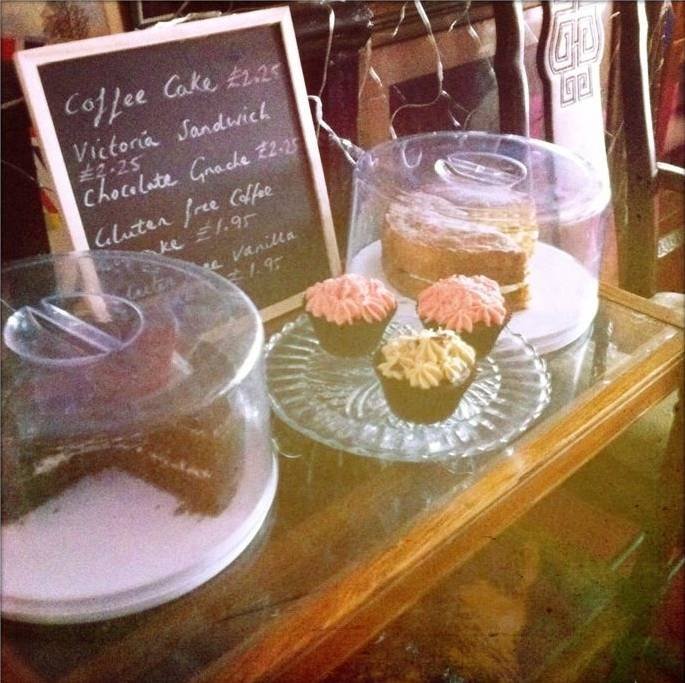 Coffee Cake £2.25
Victoria Sandwich
£2.25
Chocolate Gnache £2.25
Gluten free Coffee
Cake £1.95
Gluten free Vanilla
£1.95